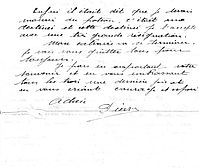 Enfin il était dit que je devais
mourir du poteau c'était ma
destinée et cette destinée je l'accepte
avec une très grande résignation.
Mon existence va se terminer
je vais vous quitter tous pour
toujours.
Je pars en emportant votre
souvenir et en vous embrassant
tous les trois une dernière fois et
en vous criant courage et espoir
Adieu